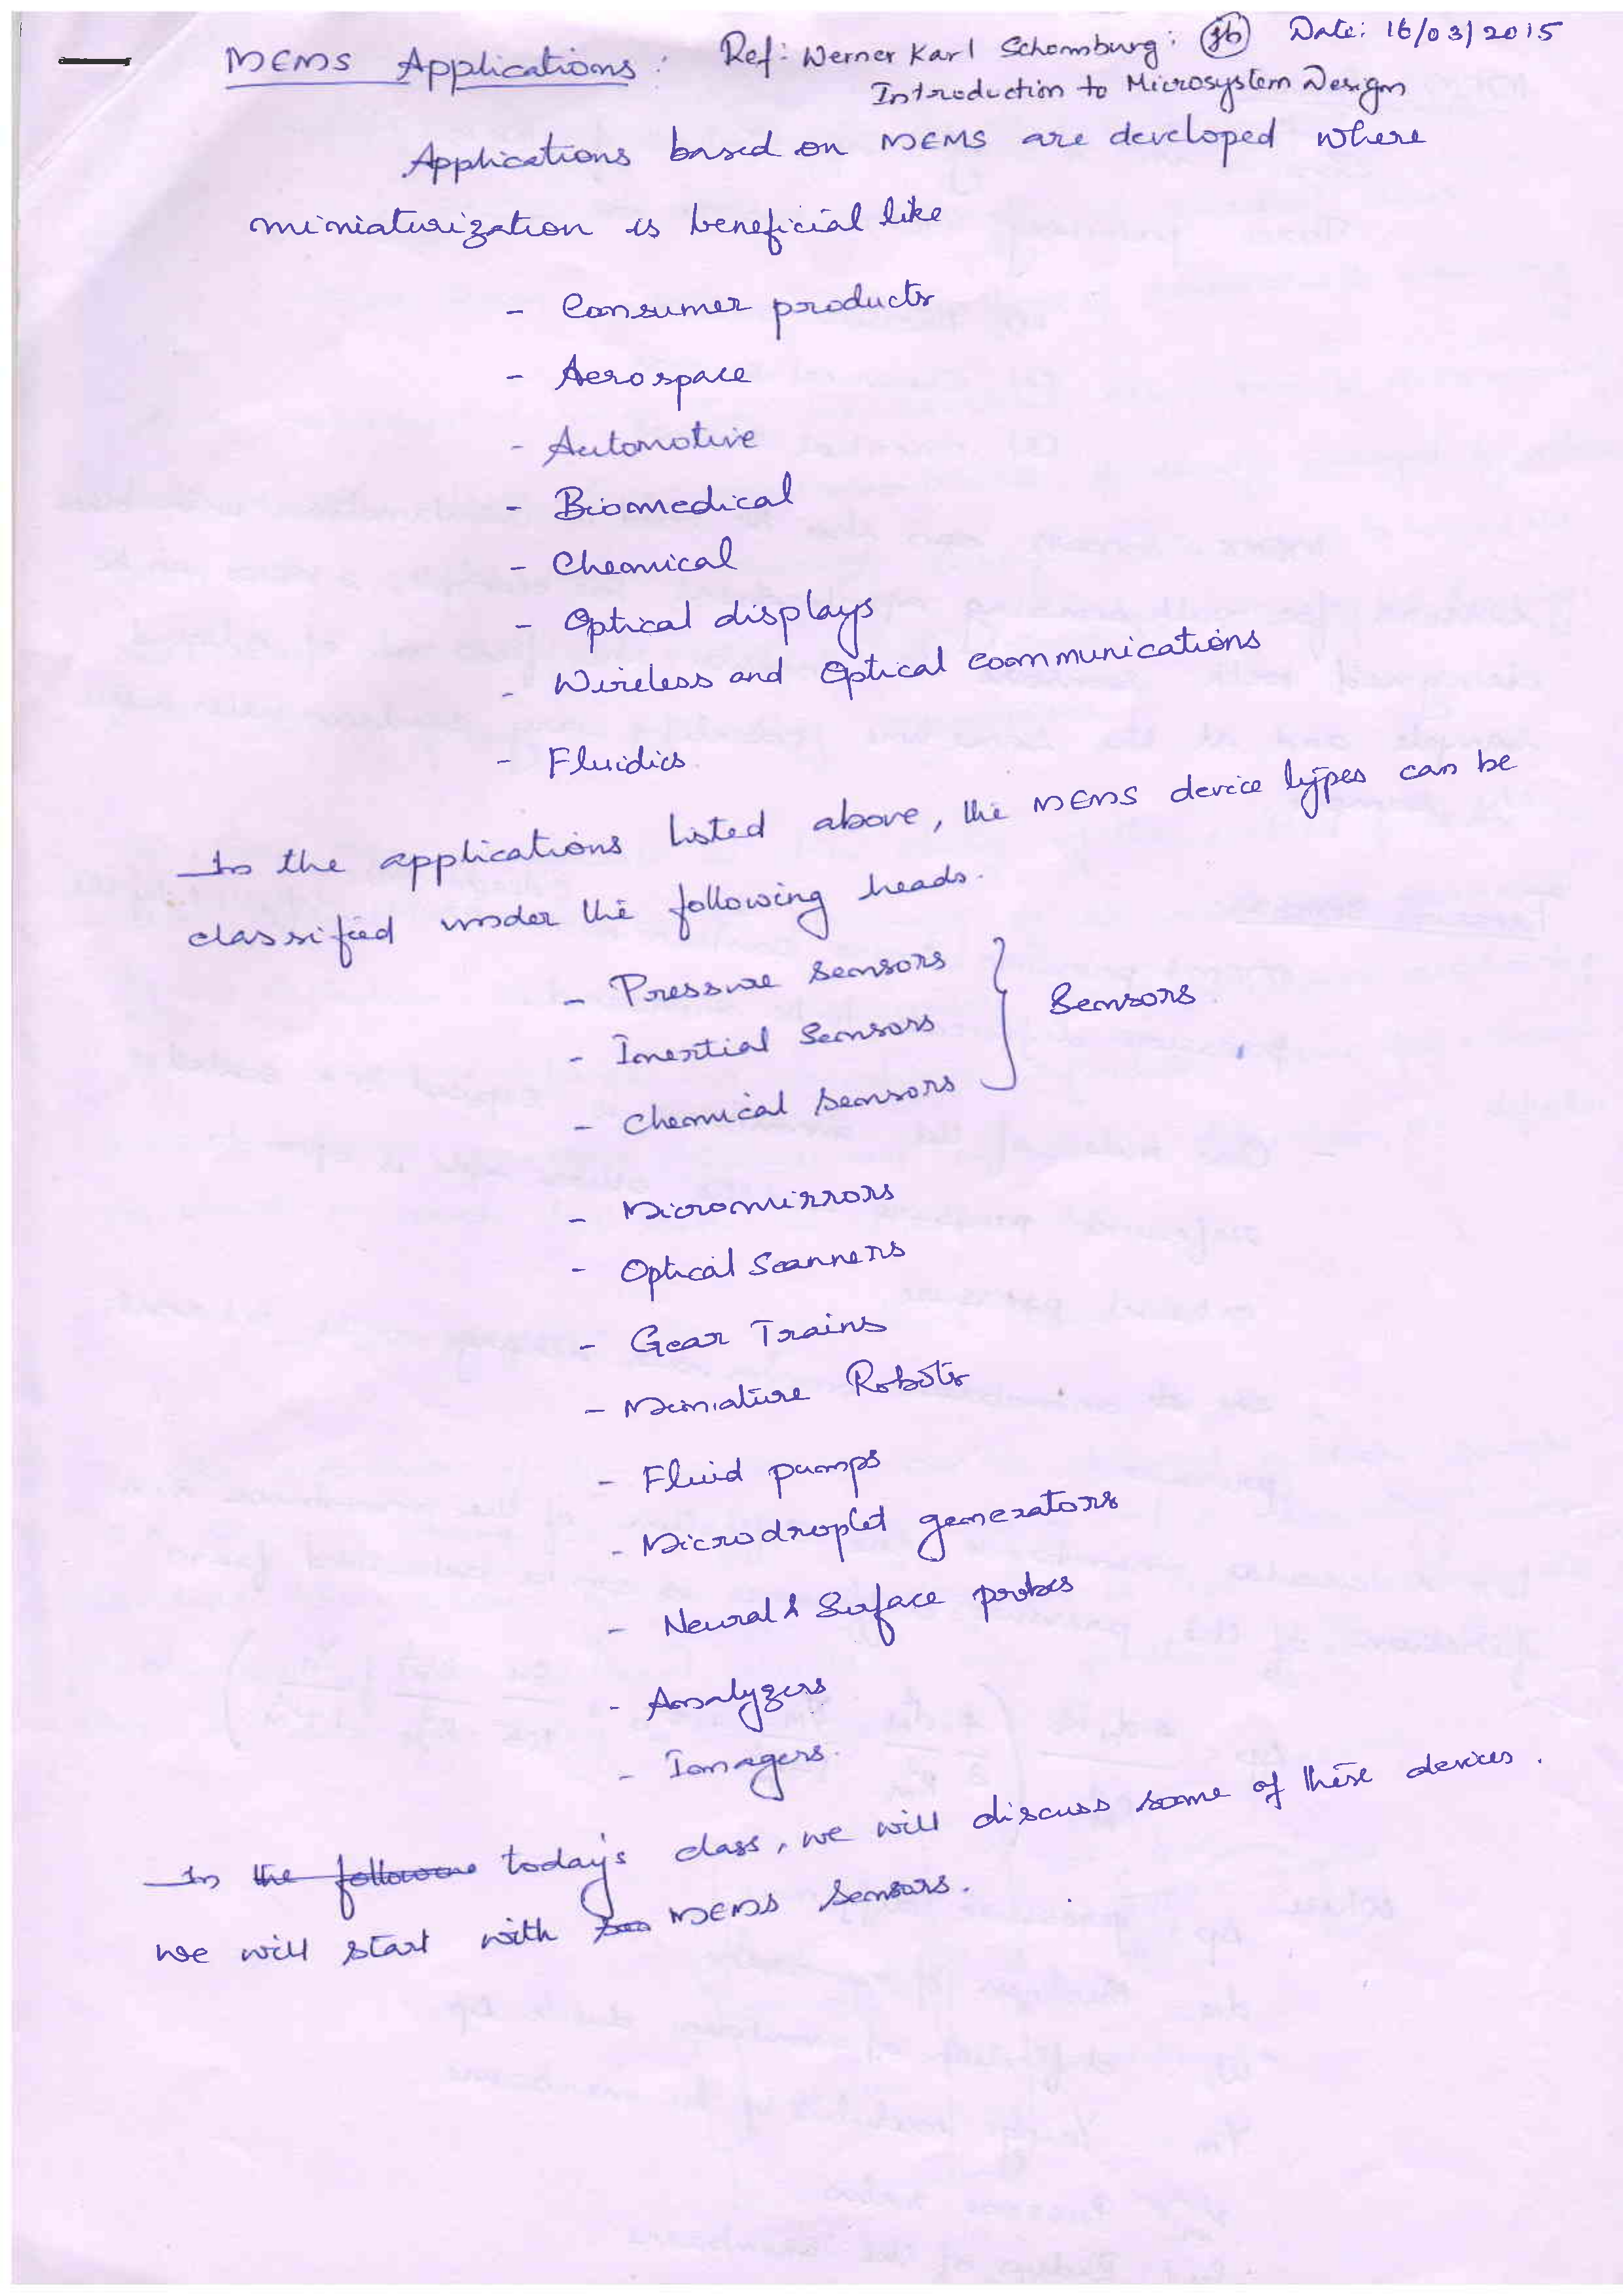 MEMS Applications: Ref: Werner Karl Schomburg: Date: 16/03/2015
Introduction to Microsystem Design
Applications based on MEMS are developed where
miniaturization is beneficial like
- Consumer products
- Aerospace
- Automotive
- Biomedical
- Chemical
- Optical displays
- Wireless and Optical communications
- Fluidics.
In the applications listed above, the MEMS device types can be
classified under the following heads.
- Pressure sensors
- Inertial Sensors } Sensors
- Chemical sensors
- Micromirrors
- Optical Scanners
- Gear Trains
- Miniature Robots
- Fluid pumps
- Microdroplet generators
- Neural & Surface probes
- Analyzers
- Imagers.
In the today's class, we will discuss some of these devices.
we will start with MEMS Sensors.